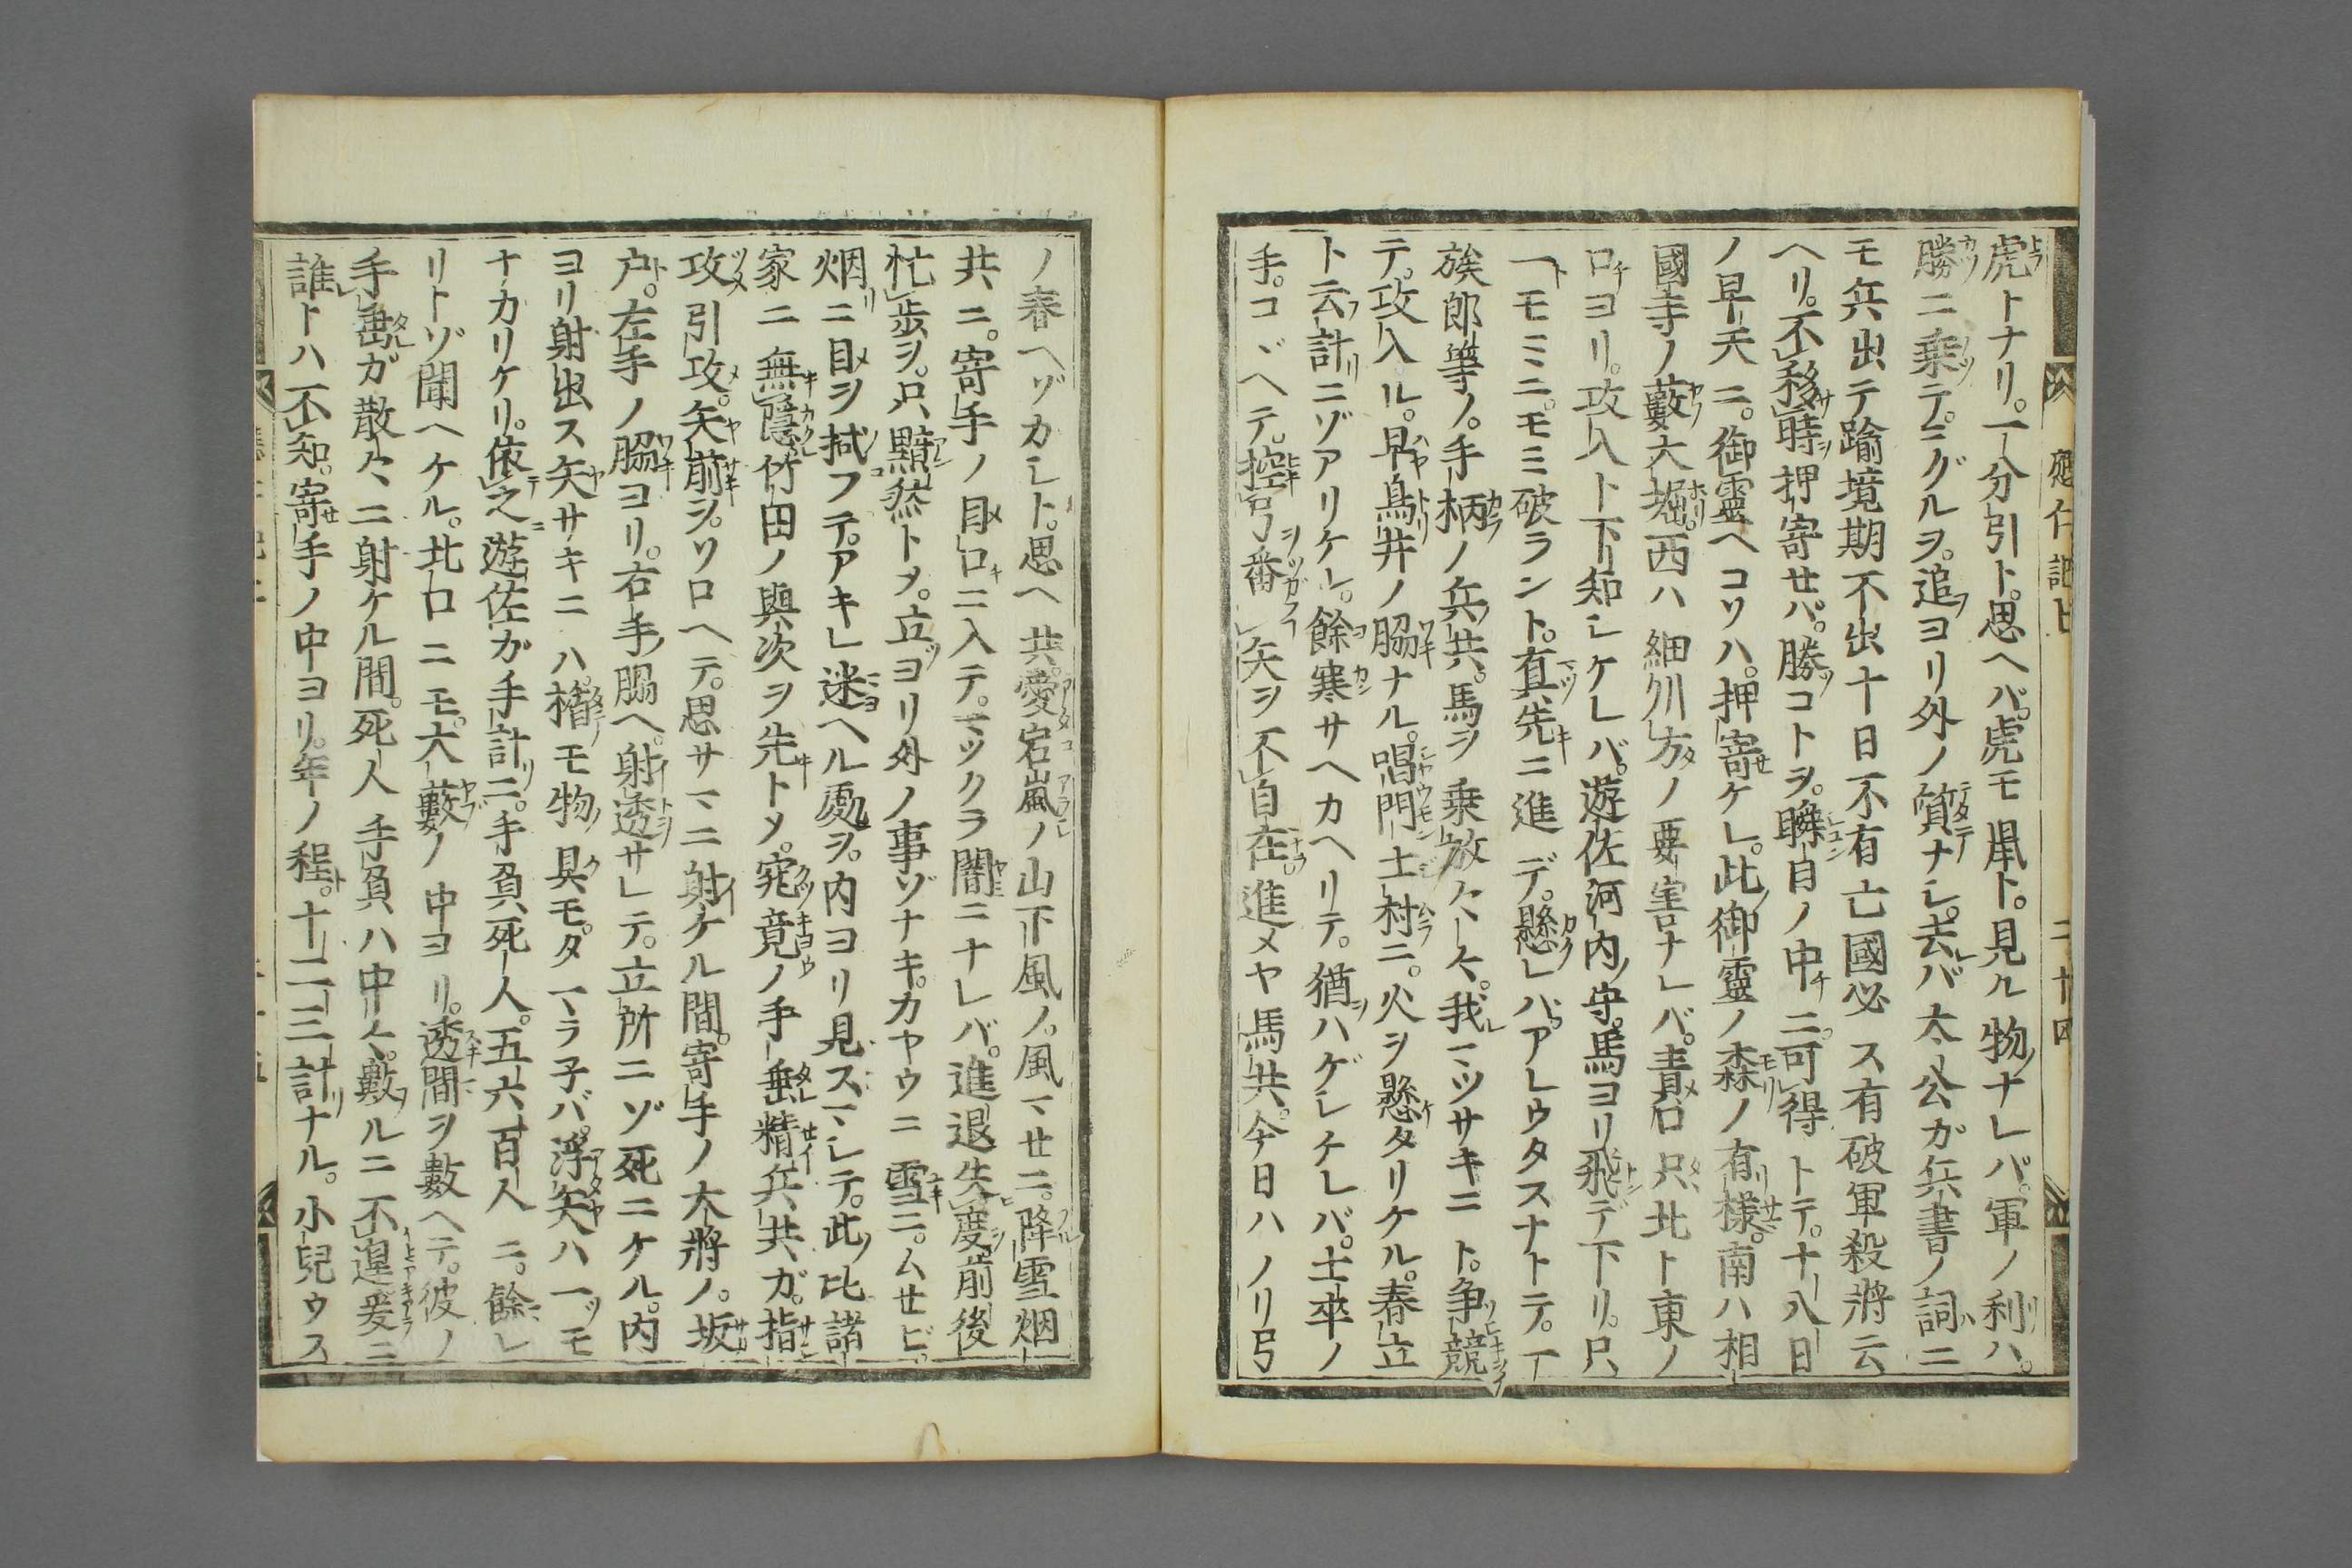 虎トナリ。一分引ト。思ヘバ。虎モ鼠ト。見ル物ナレバ。軍ノ利ハ。
勝ニ乗テ。ニグルヲ。追ヨリ外ノ質ナシ。去バ太公ガ兵書ノ詞ニ
モ兵出テ踰境期不出十日不有亡國必ス有破軍殺將云
ヘリ。不移時押寄せバ。勝コトヲ。瞬目ノ中ニ。可得トテ。十八日
ノ早天ニ。御靈ヘコソハ。押寄ケレ。此御靈ノ森ノ有樣。南ハ相
國寺ノ藪大堀。西ハ細川方ノ要害ナレバ。責口只北ト東ノ
口ヨリ。攻入ト下知シケレバ。遊佐河内守。馬ヨリ飛デ下リ。只
一モミニ。モミ破ラント。直先ニ進デ。懸レバ。アレウタスナトテ。一
族郎等ノ。手柄ノ兵共。馬ヲ乗放々々。我マツサキニト。争競
テ。攻入ル。早鳥井ノ脇ナル。唱門士村ニ。火ヲ懸タリケル。春立
ト云計ニゾアリケレ。餘寒サヘカヘリテ。猶ハゲシケレバ。士卒ノ
手。コヾヘテ。控弓番矢ヲ不自在。進メヤ馬共。今日ハノリ弓
應仁記上
二十四
ノ春ヘゾカシト。思ヘ共。愛宕嵐ノ山下風ノ。風マせニ。降雪烟
共ニ。寄手ノ目口ニ入テ。マツクラ闇ニナレバ。進退失度前後
忙歩ヲ。只黯然トメ。立ヨリ外ノ事ゾナキ。カヤウニ雪ニ。ムせビ。
烟ニ目ヲ拭フテ。アキレ迷ヘル處ヲ。内ヨリ見スマシテ。此比諸
家ニ無隱竹田ノ與次ヲ先トメ。究竟ノ手垂精兵共ガ。指
攻引攻。矢前ヲ。ソロヘテ。思サマニ射ケル間。寄手ノ大將ノ。坂
戸。左手ノ脇ヨリ。右手脇ヘ。射透サレテ。立所ニゾ死ニケル。内
ヨリ射出ス矢サキニハ。楯モ物具モ。タマラ子バ。浮矢ハ一ツモ
ナカリケリ。依之遊佐ガ手計ニ。手負死人。五六百人ニ。餘レ
リトゾ聞ヘケル。北口ニモ。大藪ノ中ヨリ。透間ヲ數ヘテ。彼ノ
手垂ガ散々ニ射ケル間。死人手負ハ中々。數ルニ不遑爰ニ
誰トハ不知。寄手ノ中ヨリ。年ノ程。十二三計ナル。小兒ウス